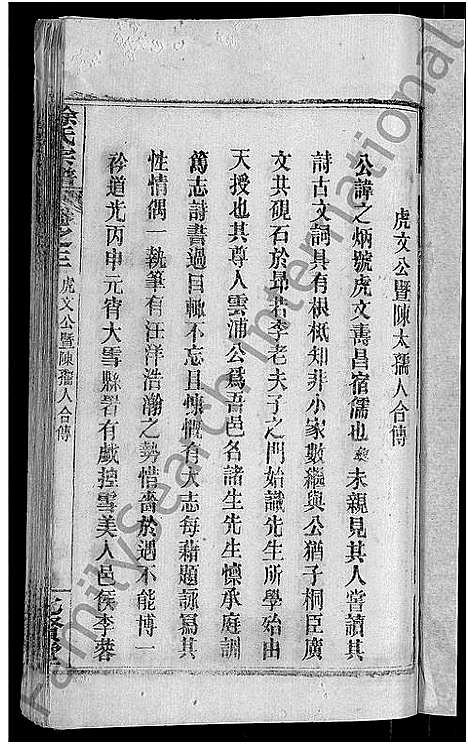 虎文公暨陳太孺人合傳
公諱之炳號虎文壽昌宿儒也 未親見其人嘗讀其
詩古文詞具有根柢知非小家數繼與公猶子桐臣廣
文共硯石於昴若李老夫子之門始識先生所學始由
天授也其尊人雲浦公爲吾邑名諸生先生懍承庭訓
篤志詩書過目輙不忘且慷慨有大志每藉題詠寫其
性情偶一執筆有汪洋浩瀚之勢惜嗇於遇不能博一
衿道光丙申元宵大雪縣署有戲摶雪美人邑侯李蓉
徐氏宗譜 卷之三 虎文公暨陳孺人合傳
FamilySearch International